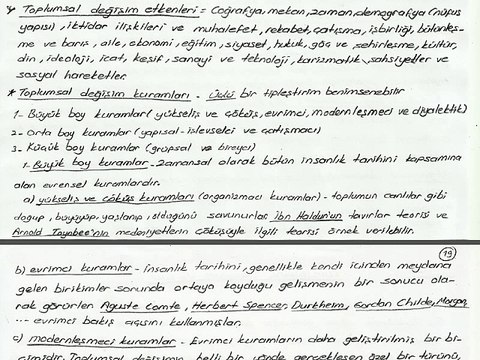 * Toplumsal değişim etkenleri = Coğrafya, mekan, zaman, demografya (nüfus
yapısı), iktidar ilişkileri ve muhalefet, rekabet, çatışma, işbirliği, bütünleş-
me ve barış, aile, ekonomi, eğitim, siyaset, hukuk, göç ve şehirleşme, kültür,
din, ideoloji, icat, keşif, sanayi ve teknoloji, karizmatik şahsiyetler ve
sosyal hareketler.
* Toplumsal değişim kuramları - Üçlü bir tipleştirim benimsenebilir
1- Büyük boy kuramlar (yükseliş ve çöküş, evrimci, modernleşmeci ve diyalektik)
2- Orta boy kuramlar (yapısal-işlevselci ve çatışmacı)
3- Küçük boy kuramlar (grupsal ve bireyci)
1- Büyük boy kuramlar - zamansal olarak bütün insanlık tarihini kapsamına
alan evrensel kuramlardır.
a) yükseliş ve çöküş kuramları (organizmacı kuramlar) - toplumun canlılar gibi
doğup, büyüyüp, yaşlanıp, öldüğünü savunurlar İbn Haldun'un tavırlar teorisi ve
Arnold Toynbee'nin medeniyetlerin çöküşüyle ilgili teorisi örnek verilebilir.
19
b) evrimci kuramlar - insanlık tarihini, genellikle kendi içinden meydana
gelen birikimler sonunda ortaya koyduğu gelişmenin bir sonucu ola-
rak görürler Aguste Comte, Herbert Spencer, Durkheim, Gordon Childe, Morgan,
... evrimci bakış açısını kullanmışlar.
c) modernleşmeci kuramlar - Evrimci kuramların daha geliştirilmiş bir bi-
çimidir. Toplumsal değişmenin belli bir yönde gerçekleşen özel bir türünü,